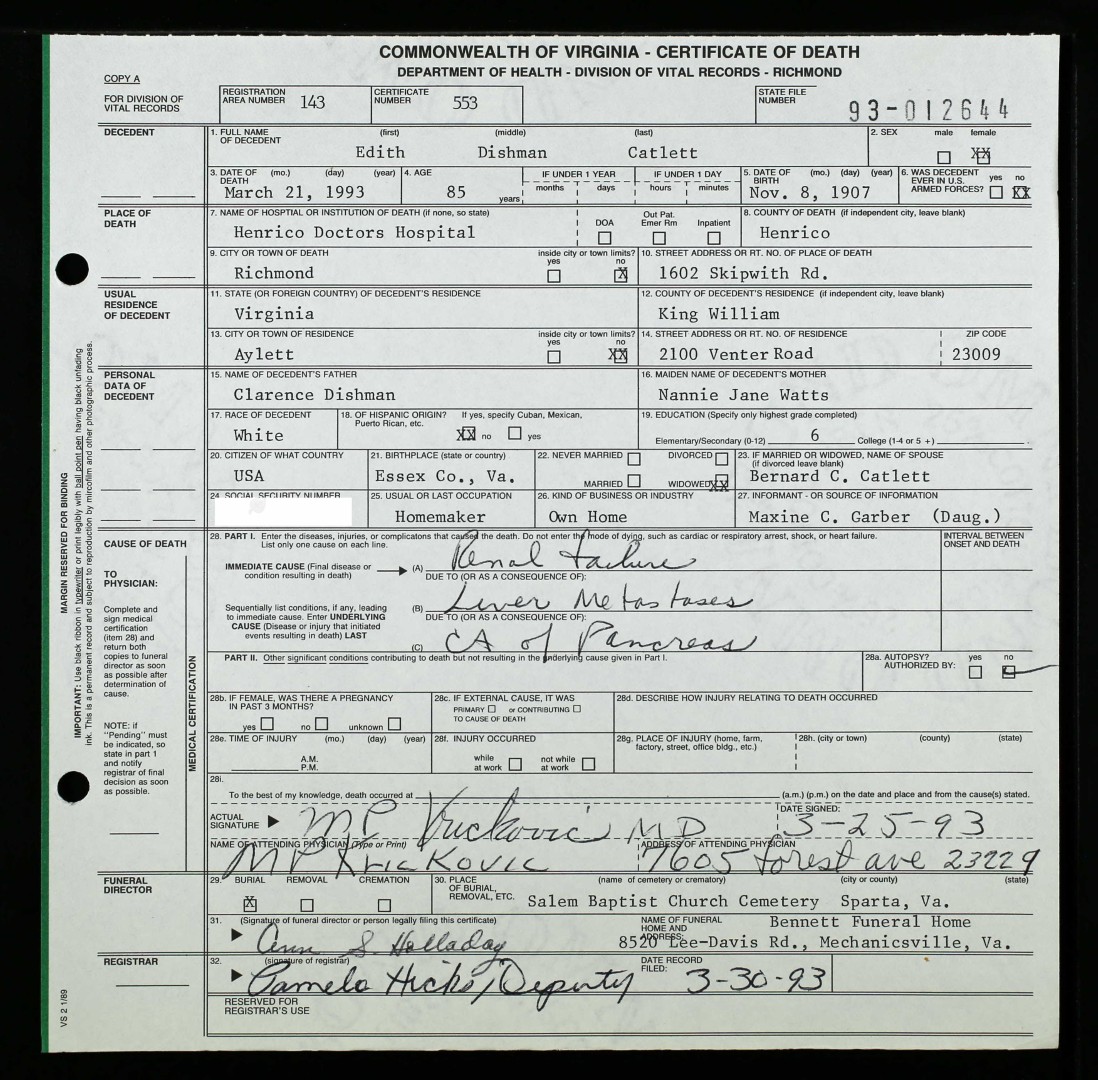 COMMONWEALTH OF VIRGINIA - CERTIFICATE OF DEATH
DEPARTMENT OF HEALTH - DIVISION OF VITAL RECORDS - RICHMOND
COPY A
FOR DIVISION OF VITAL RECORDS
REGISTRATION AREA NUMBER 143
CERTIFICATE NUMBER 553
STATE FILE NUMBER 93-012644
DECEDENT
1. FULL NAME OF DECEDENT (first) (middle) (last)
Edith Dishman Catlett
2. SEX male female XX
3. DATE OF DEATH (mo.) (day) (year)
March 21, 1993
4. AGE 85 years
IF UNDER 1 YEAR months days
IF UNDER 1 DAY hours minutes
5. DATE OF BIRTH (mo.) (day) (year)
Nov. 8, 1907
6. WAS DECEDENT EVER IN U.S. ARMED FORCES? yes no XX
PLACE OF DEATH
7. NAME OF HOSPTIAL OR INSTITUTION OF DEATH (if none, so state)
Henrico Doctors Hospital
DOA Out Pat. Emer Rm Inpatient
8. COUNTY OF DEATH (if independent city, leave blank)
Henrico
9. CITY OR TOWN OF DEATH inside city or town limits? yes no X
Richmond
10. STREET ADDRESS OR RT. NO. OF PLACE OF DEATH
1602 Skipwith Rd.
USUAL RESIDENCE OF DECEDENT
11. STATE (OR FOREIGN COUNTRY) OF DECEDENT'S RESIDENCE
Virginia
12. COUNTY OF DECEDENT'S RESIDENCE (if independent city, leave blank)
King William
13. CITY OR TOWN OF RESIDENCE inside city or town limits? yes no XX
Aylett
14. STREET ADDRESS OR RT. NO. OF RESIDENCE ZIP CODE
2100 Venter Road 23009
PERSONAL DATA OF DECEDENT
15. NAME OF DECEDENT'S FATHER
Clarence Dishman
16. MAIDEN NAME OF DECEDENT'S MOTHER
Nannie Jane Watts
17. RACE OF DECEDENT
White
18. OF HISPANIC ORIGIN? If yes, specify Cuban, Mexican, Puerto Rican, etc.
XX no yes
19. EDUCATION (Specify only highest grade completed)
Elementary/Secondary (0-12) 6 College (1-4 or 5 +)
20. CITIZEN OF WHAT COUNTRY
USA
21. BIRTHPLACE (state or country)
Essex Co., Va.
22. NEVER MARRIED DIVORCED
MARRIED WIDOWED XX
23. IF MARRIED OR WIDOWED, NAME OF SPOUSE (if divorced leave blank)
Bernard C. Catlett
24. SOCIAL SECURITY NUMBER
25. USUAL OR LAST OCCUPATION
Homemaker
26. KIND OF BUSINESS OR INDUSTRY
Own Home
27. INFORMANT - OR SOURCE OF INFORMATION
Maxine C. Garber (Daug.)
CAUSE OF DEATH
TO PHYSICIAN:
Complete and sign medical certification (item 28) and return both copies to funeral director as soon as possible after determination of cause.
NOTE: if "Pending" must be indicated, so state in part 1 and notify registrar of final decision as soon as possible.
MARGIN RESERVED FOR BINDING
IMPORTANT: Use black ribbon in typewriter or print legibly with ball point pen having black unfading
ink. This is a permanent record and subject to reproduction by mircofilm and other photographic process.
MEDICAL CERTIFICATION
28. PART I. Enter the diseases, injuries, or complicatons that caused the death. Do not enter the mode of dying, such as cardiac or respiratory arrest, shock, or heart failure.
List only one cause on each line.
INTERVAL BETWEEN ONSET AND DEATH
IMMEDIATE CAUSE (Final disease or condition resulting in death) (A) Renal Failure
DUE TO (OR AS A CONSEQUENCE OF):
Sequentially list conditions, if any, leading to immediate cause. Enter UNDERLYING CAUSE (Disease or injury that initiated events resulting in death) LAST
(B) Liver Metastases
DUE TO (OR AS A CONSEQUENCE OF):
(C) CA of Pancreas
PART II. Other significant conditions contributing to death but not resulting in the underlying cause given in Part I.
28a. AUTOPSY? AUTHORIZED BY: yes no
28b. IF FEMALE, WAS THERE A PREGNANCY IN PAST 3 MONTHS?
yes no unknown
28c. IF EXTERNAL CAUSE, IT WAS
PRIMARY or CONTRIBUTING
TO CAUSE OF DEATH
28d. DESCRIBE HOW INJURY RELATING TO DEATH OCCURRED
28e. TIME OF INJURY (mo.) (day) (year)
A.M.
P.M.
28f. INJURY OCCURRED
while at work not while at work
28g. PLACE OF INJURY (home, farm, factory, street, office bldg., etc.)
28h. (city or town) (county) (state)
28i.
To the best of my knowledge, death occurred at (a.m.) (p.m.) on the date and place and from the cause(s) stated.
ACTUAL SIGNATURE MP Vrickovic MD
DATE SIGNED: 3-25-93
NAME OF ATTENDING PHYSICIAN (Type or Print)
ADDRESS OF ATTENDING PHYSICIAN
7605 Forest ave 23229
FUNERAL DIRECTOR
29. BURIAL REMOVAL CREMATION
X
30. PLACE OF BURIAL, REMOVAL, ETC. (name of cemetery or crematory) (city or county) (state)
Salem Baptist Church Cemetery Sparta, Va.
31. (Signature of funeral director or person legally filing this certificate)
Ann S. Holladay
NAME OF FUNERAL HOME AND ADDRESS:
Bennett Funeral Home
8520 Lee-Davis Rd., Mechanicsville, Va.
REGISTRAR
32. (signature of registrar)
Pamela Hicks, Deputy
DATE RECORD FILED: 3-30-93
RESERVED FOR REGISTRAR'S USE
VS 2 1/89